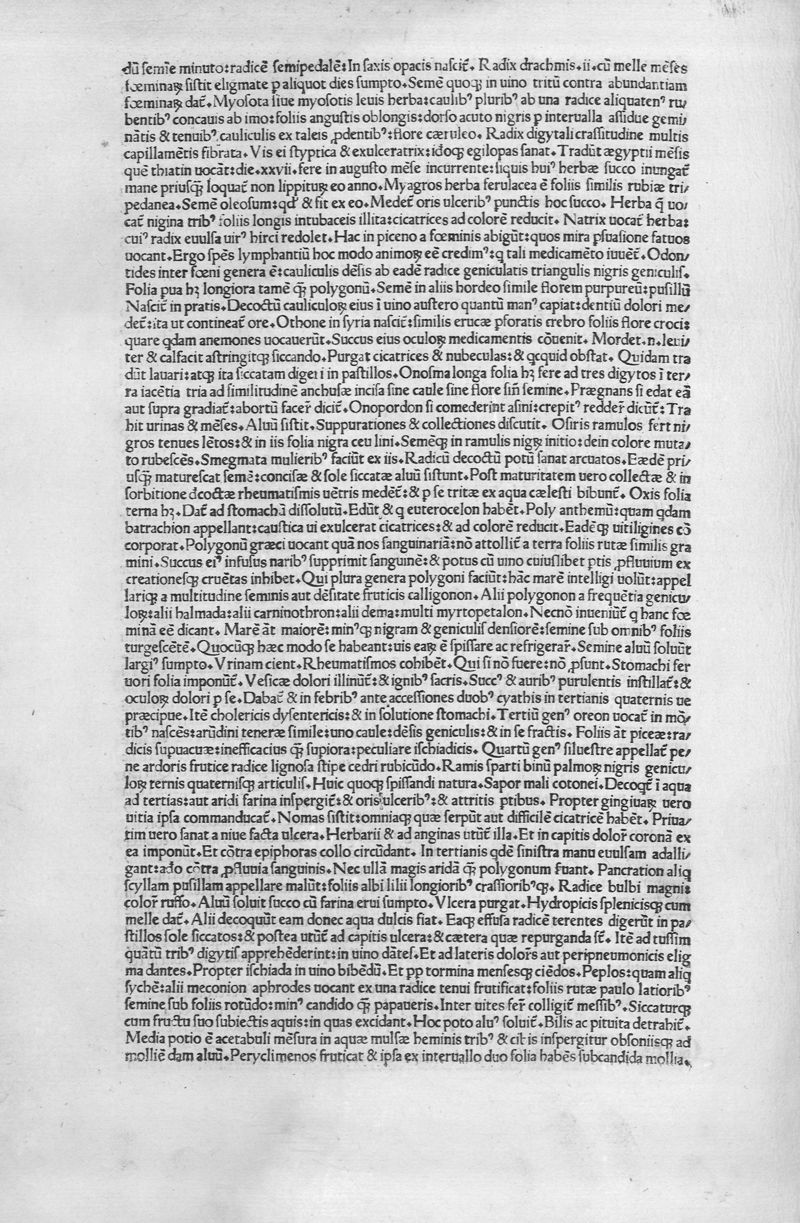 dū semīe minuto:radicē semipedalē:In saxis opacis nascit᷑. Radix drachmis.ii.cū melle mēses
fœminaꝝ sistit eligmate p aliquot dies sumpto.Semē quoqꝫ in uino tritū contra abundantiam
fœminaꝝ dat᷑.Myosota siue myosotis leuis herba:caulibꝰ pluribꝰ ab una radice aliquatenꝰ ru/
bentibꝰ concauis ab imo:foliis angustis oblongis:dorso acuto nigris p interualla assidue gemi/
nātis & tenuibꝰ,cauliculis ex taleis ꝓdentibꝰ:flore cæruleo. Radix digytali crassitudine multis
capillamētis fibrata.Vis ei styptica & exulceratrix:idoqꝫ egilopas sanat.Tradūt ægyptii mēsis
quē thiatin uocāt:die.xxvii.fere in augusto mēse incurrente:siquis huiꝰ herbæ succo inungat᷑
mane priusqꝫ loquat᷑ non lippituꝝ eo anno.Myagros herba ferulacea ē foliis similis rubiæ tri/
pedanea.Semē oleosum:qđ & fit ex eo.Medet᷑ oris ulceribꝰ punctis hoc succo. Herba q̄ uo/
cat᷑ nigina tribꝰ foliis longis intubaceis illita:cicatrices ad colorē reducit. Natrix uocat᷑ herba:
cuiꝰ radix euulsa uirꝰ hirci redolet.Hac in piceno a fœminis abigūt:quos mira psuasione fatuos
uocant.Ergo spēs lymphantiū hoc modo animoꝝ eē credimꝰ:q tali medicamēto iuuēt᷑.Odon/
tides inter fœni genera ē:cauliculis dēsis ab eadē radice geniculatis triangulis nigris geniculis.
Folia pua hꝫ longiora tamē q̄ꝫ polygonū.Semē in aliis hordeo simile florem purpureū:pusillū
Nascit᷑ in pratis.Decoctū cauliculoꝝ eius ī uino austero quantū manꝰ capiat:dentiū dolori me/
det᷑:ita ut contineat᷑ ore.Othone in syria nascit᷑:similis erucæ pforatis crebro foliis flore croci:
quare qdam anemones uocauerūt.Succus eius oculoꝝ medicamentis cōuenit. Mordet.n.leui/
ter & calfacit astringitqꝫ siccando.Purgat cicatrices & nubeculas:& qcquid obstat. Quidam tra
dūt lauari:atqꝫ ita siccatam digeri in pastillos.Onosma longa folia hꝫ fere ad tres digytos ī ter/
ra iacētia tria ad similitudinē anchusæ incisa sine caule sine flore siñ semine.Prægnans si edat eā
aut supra gradiat᷑:abortū facer̄ dicit᷑.Onopordon si comederint asini:crepitꝰ redder̄ dicūt᷑:Tra
hit urinas & mēses.Aluū sistit.Suppurationes & collectiones discutit. Osiris ramulos fert ni/
gros tenues lētos:& in iis folia nigra ceu lini.Semēqꝫ in ramulis nigꝝ initio:dein colore muta/
to rubescēs.Smegmata mulieribꝰ faciūt ex iis.Radicū decoctū potū sanat arcuatos.Eædē pri/
usq̄ꝫ maturescat semē:concisæ & sole siccatæ aluū sistunt.Post maturitatem uero collectæ & in
sorbitione dcoctæ rheumatismis uētris medēt᷑:& p se tritæ ex aqua cælesti bibunt᷑. Oxis folia
terna hꝫ.Dat᷑ ad stomachū dissolutū.Edūt & q euterocelon habēt.Poly anthemū:quam qdam
batrachion appellant:caustica ui exulcerat cicatrices:& ad colorē reducit.Eadēqꝫ uitiligines cō
corporat.Polygonū græci uocant quā nos sanguinariā:nō attollit᷑ a terra foliis rutæ similis gra
mini.Succus eiꝰ infusus naribꝰ supprimit sanguinē:& potus cū uino cuiuslibet ptis ꝓfluuium ex
creationesqꝫ cruētas inhibet.Qui plura genera polygoni faciūt:hāc marē intelligi uolūt:appel
lariqꝫ a multitudine seminis aut dēsitate fruticis calligonon.Alii polygonon a frequētia genicu/
loꝝ:alii halmada:alii carninothron:alii dema:multi myrtopetalon.Necnō inueniūt᷑ q hanc fœ
minā eē dicant. Marē āt maiorē:minꝰqꝫ nigram & geniculis densiorē:semine sub omnibꝰ foliis
turgescētē.Quocūqꝫ hæc modo se habeant:uis eaꝝ ē spissare ac refrigerar̄.Semine aluū soluūt
largiꝰ sumpto.Vrinam cient.Rheumatismos cohibēt.Qui si nō fuere:nō ꝓsunt.Stomachi fer
uori folia imponūt᷑.Vesicæ dolori illinūt᷑:& ignibꝰ sacris.Succꝰ & auribꝰ purulentis instillat᷑:&
oculoꝝ dolori p se.Dabat᷑ & in febribꝰ ante accessiones duobꝰ cyathis in tertianis quaternis ue
præcipue.Itē cholericis dysentericis:& in solutione stomachi.Tertiū genꝰ oreon uocat᷑ in mō/
tibꝰ nascēs:arūdini teneræ simile:uno caule:dēsis geniculis:& in se fractis. Foliis āt piceæ:ra/
dicis supuacuæ:inefficacius q̄ꝫ supiora:peculiare ischiadicis. Quartū genꝰ siluestre appellat᷑ pe/
ne ardoris frutice radice lignosa stipe cedri rubicūdo.Ramis sparti binū palmoꝝ nigris genicu/
loꝝ ternis quaternisqꝫ articulis.Huic quoqꝫ spissandi natura.Sapor mali cotonei.Decoqt᷑ ī aqua
ad tertias:aut aridi farina inspergit᷑:& oris ulceribꝰ:& attritis ptibus. Propter gingiuaꝝ uero
uitia ipsa commanducat᷑.Nomas sistit:omniaqꝫ quæ serpūt aut difficilē cicatricē habēt. Priua/
tim uero sanat a niue facta ulcera.Herbarii & ad anginas utūt᷑ illa.Et in capitis dolor̄ coronā ex
ea imponūt.Et cōtra epiphoras collo circūdant. In tertianis qdē sinistra manu euulsam adalli/
gant:ado cōtra ꝓfluuia sanguinis.Nec ullā magis aridā q̄ꝫ polygonum ſuant.Pancration aliq
scyllam pusillam appellare malūt:foliis albi lilii longioribꝰ crassioribꝰqꝫ. Radice bulbi magni:
color̄ ruffo.Aluū soluit succo cū farina erui sumpto.Vlcera purgat.Hydropicis splenicisqꝫ cum
melle dat᷑.Alii decoquūt eam donec aqua dulcis fiat.Eaqꝫ effusa radicē terentes digerūt in pa/
stillos sole siccatos:& postea utūt᷑ ad capitis ulcera:& cætera quæ repurganda sēt. Itē ad tussim
quātū tribꝰ digytis apprehēderint:in uino dātes.Et ad lateris dolor̄s aut peripneumonicis elig
ma dantes.Propter ischiada in uino bibēdū.Et pp tormina mensesqꝫ ciēdos.Peplos:quam aliq
sychē:alii meconion aphrodes uocant ex una radice tenui frutificat:foliis rutæ paulo latioribꝰ
semine sub foliis rotūdo:minꝰ candido q̄ꝫ papaueris.Inter uites fer̄ colligit᷑ messibꝰ.Siccaturqꝫ
cum fructu suo subiectis aquis:in quas excidant.Hoc poto aluꝰ soluit᷑.Bilis ac pituita detrahit᷑.
Media potio ē acetabuli mēsura in aquæ mulsæ heminis tribꝰ & cibis inspergitur obsoniisqꝫ ad
molliēdam aluū.Peryclimenos fruticat & ipsa ex interuallo duo folia habēs subcandida mollia.